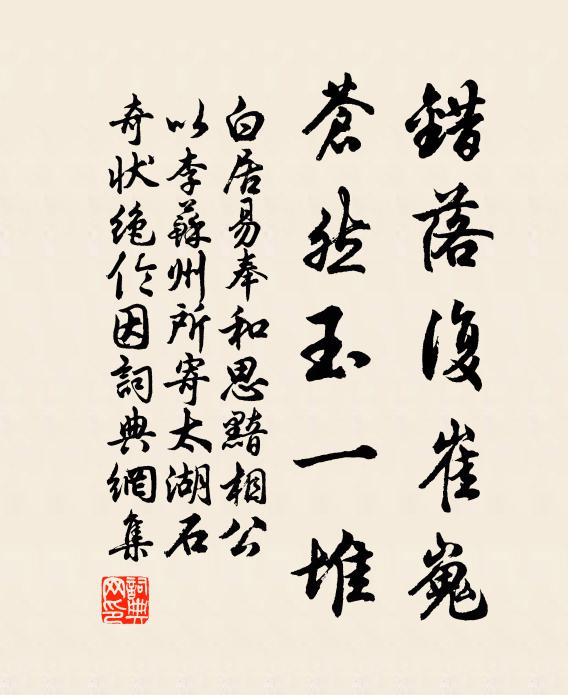 錯落復崔嵬
蒼然玉一堆
白居易奉和思黯相公
以李蘇州所寄太湖石
奇状絶伦因詞典網集
詞典网印